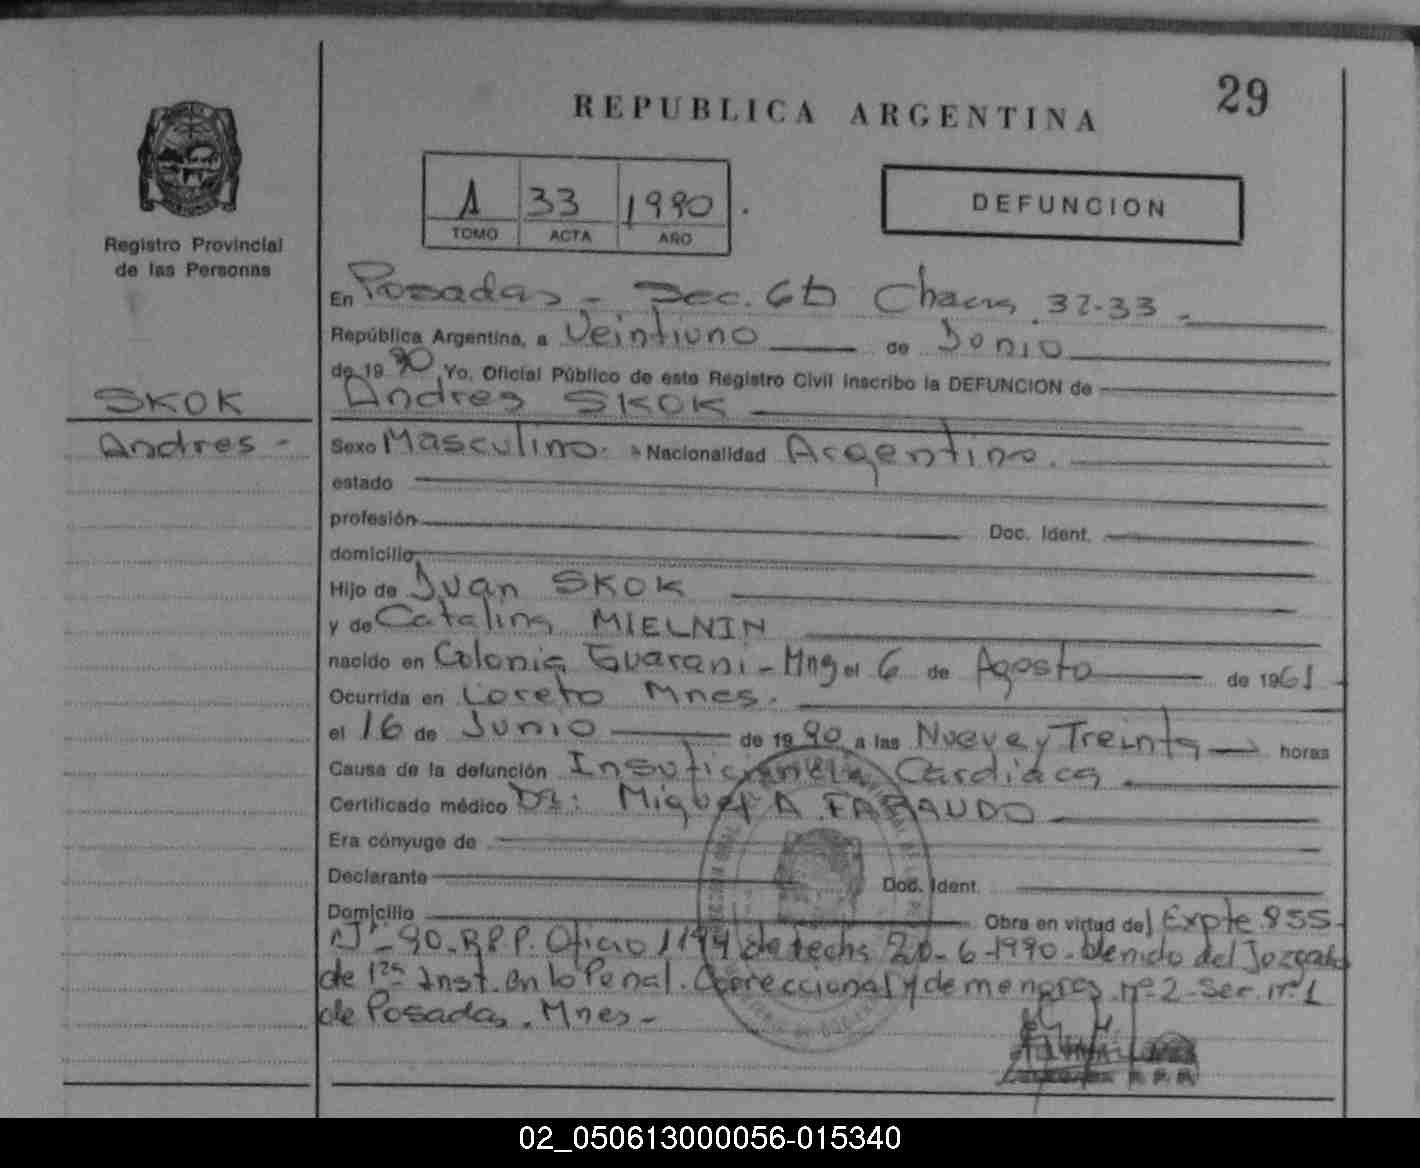 29
REPUBLICA ARGENTINA
1 33 1990
TOMO ACTA AÑO
DEFUNCION
Registro Provincial
de las Personas
SKOK
Andres -
En Posadas - Sec. 6ta Chacra 32-33 -
República Argentina, a Veintiuno de Junio
de 1990 Yo, Oficial Público de este Registro Civil inscribo la DEFUNCION de
Andres SKOK
Sexo Masculino. Nacionalidad Argentino.
estado
profesión Doc. Ident.
domicilio
Hijo de Juan SKOK
y de Catalina MIELNIN
nacido en Colonia Guarani - Mnes el 6 de Agosto de 1961
Ocurrida en Loreto Mnes.
el 16 de Junio de 1990 a las Nueve y Treinta horas
Causa de la defunción Insuficiencia Cardiaca
Certificado médico Dr: Miguel A FARAUDO
Era cónyuge de
Declarante Doc. Ident.
Domicilio Obra en virtud del Expte. 855-
-90- R.P.P. Oficio 1194 de fecha 20-6-1990- venido del Juzgado
de 1ra Inst. en lo Penal. Correccional y de menores nº 2 Sec. nº 1
de Posadas. Mnes-
02_050613000056-015340